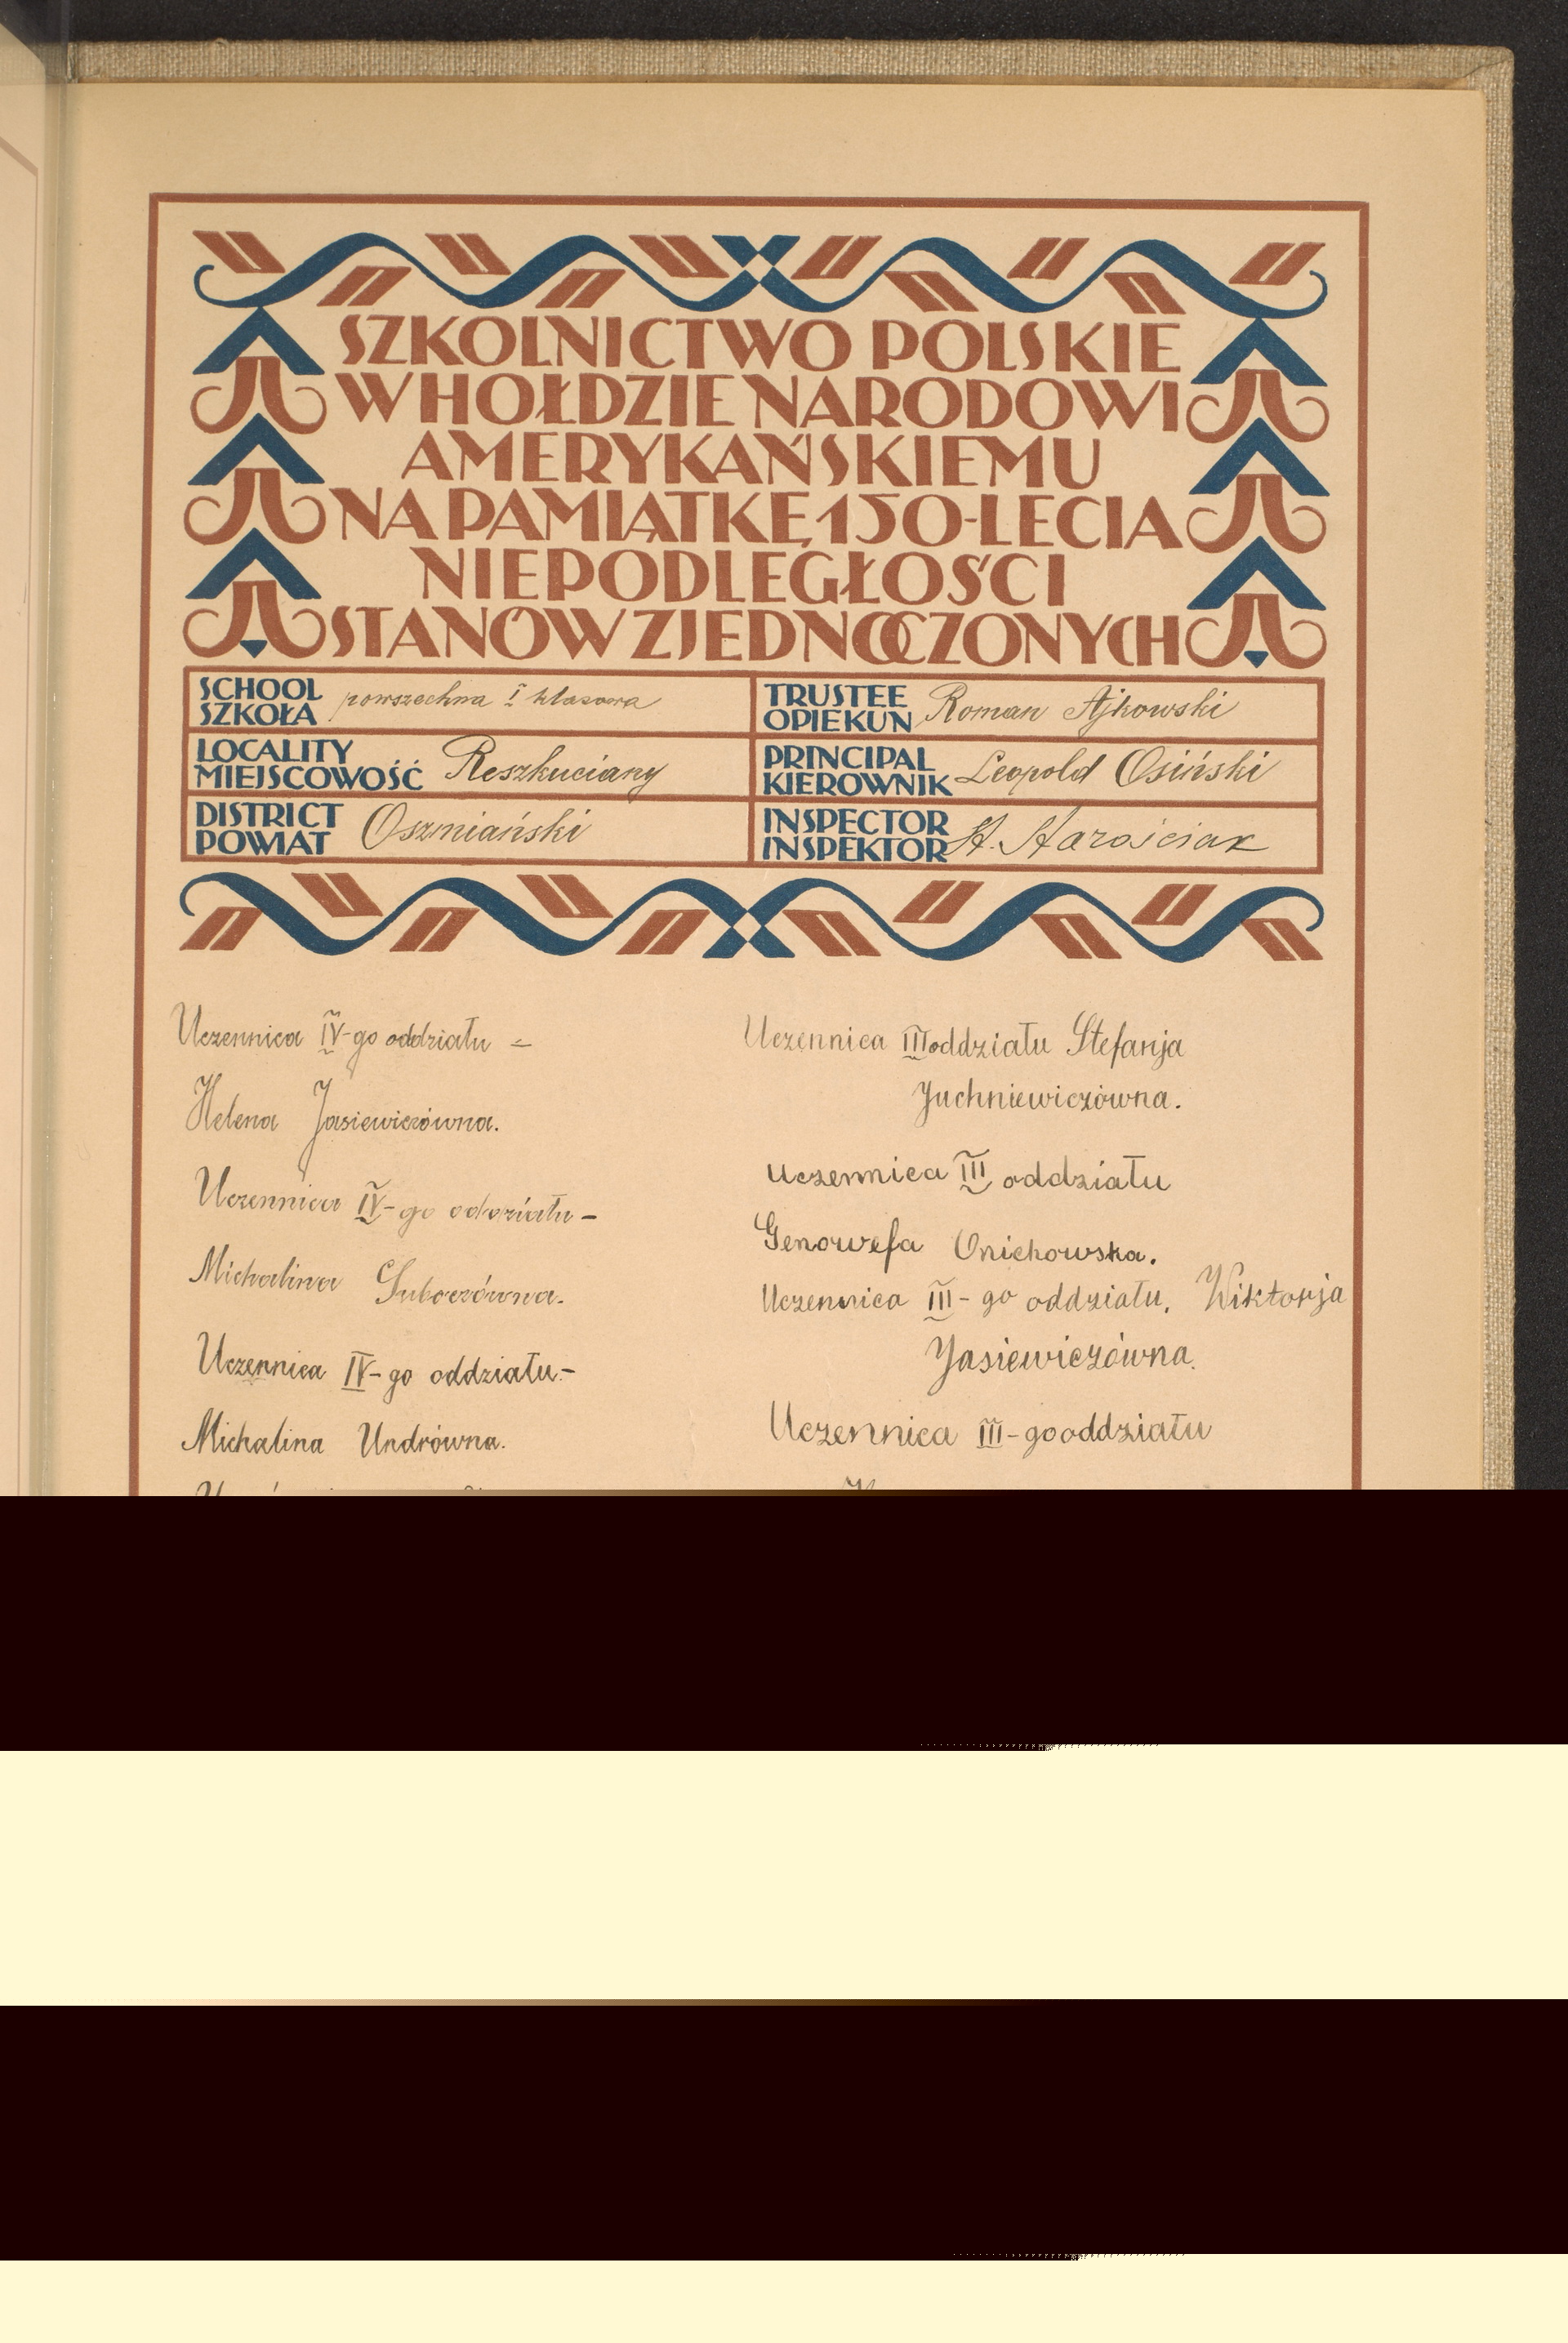 SZKOLNICTWO POLSKIE
W HOŁDZIE NARODOWI
AMERYKAŃSKIEMU
NA PAMIĄTKĘ 150-LECIA
NIEPODLEGŁOŚCI
STANÓW ZJEDNOCZONYCH
SCHOOL
SZKOŁA powszechna I klasowa
TRUSTEE
OPIEKUN Roman Ajkowski
LOCALITY
MIEJSCOWOŚĆ Reszkuciany
PRINCIPAL
KIEROWNIK Leopold Osiński
DISTRICT
POWIAT Oszmiański
INSPECTOR
INSPEKTOR St. Starościak
Uczennica IV-go oddziału -
Helena Jasiewiczówna.
Uczennica IV-go oddziału -
Michalina Suboczówna.
Uczennica IV-go oddziału -
Michalina Undrówna.
Uczennica III oddziału Stefanja
Juchniewiczówna.
uczennica III oddziału
Genowefa Onichowska.
Uczennica III-go oddziału, Wiktorja
Jasiewiczówna.
Uczennica III-go oddziału